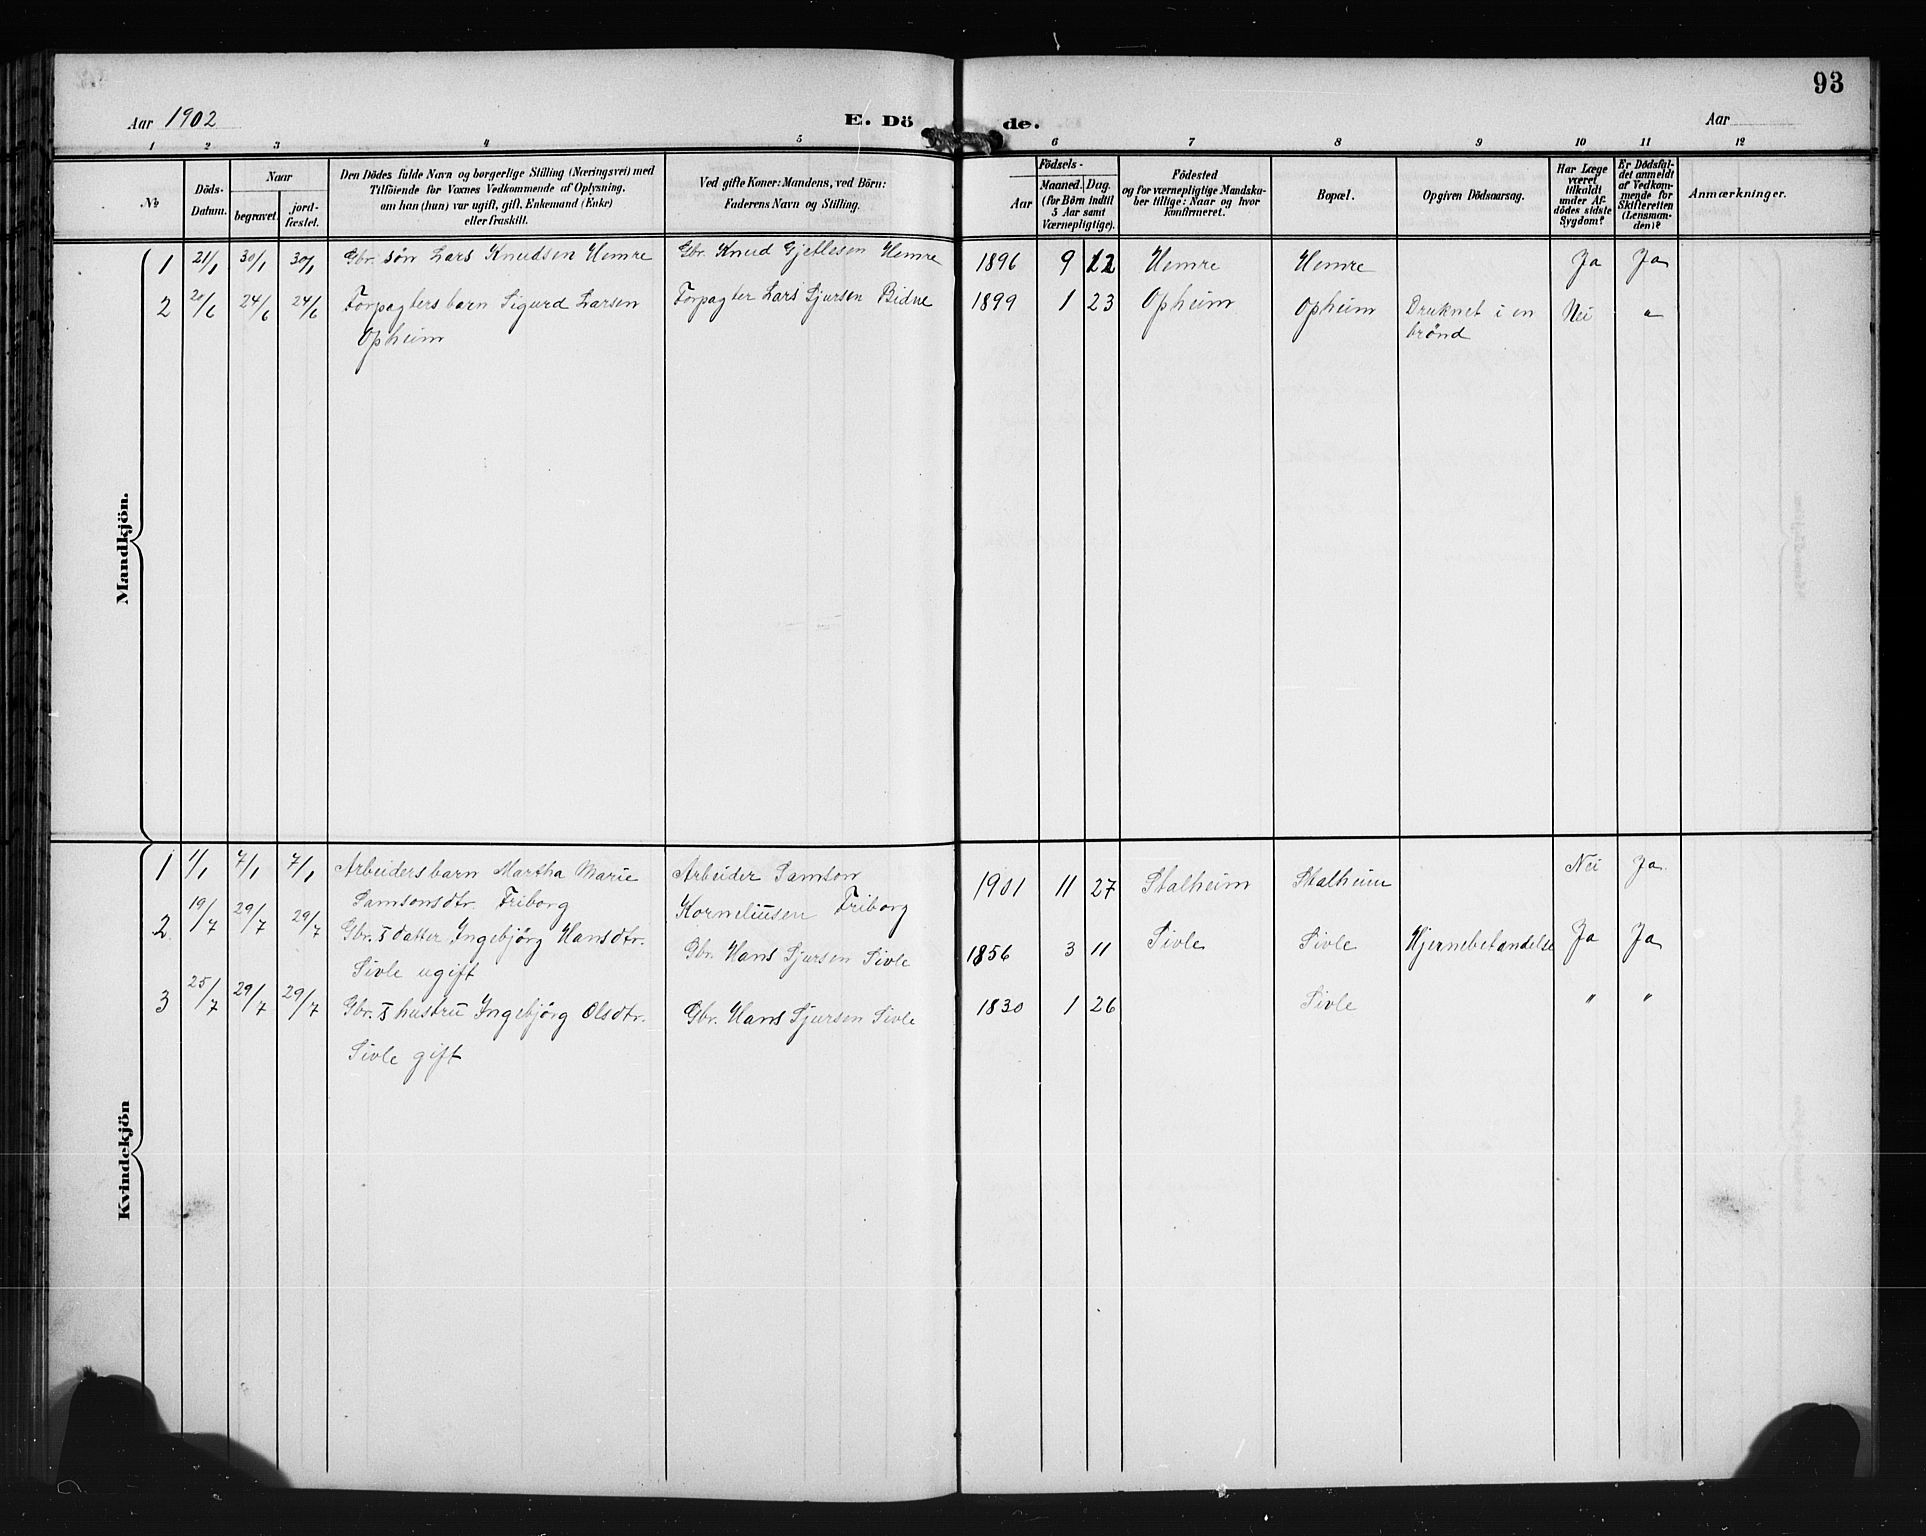 93
Aar 1902 E. Dö de. Aar
1 2 3 4 5 6 7 8 9 10 11 12
№
Döds-
Datum.
Naar
begravet.
jord-
fæstet.
Den Dödes fulde Navn og borgerlige Stilling (Næringsvei) med
Tilföiende for Voxnes Vedkommende af Oplysning.
om han (hun) var ugift, gift. Enkemand (Enke)
eller fraskilt.
Ved gifte Koner: Mandens, ved Börn:
Faderens Navn og Stilling.
Födsels-
Aar
Maaned. Dag.
(for Börn indtil
5 Aar samt
Værnepligtige).
Födested
og for værnepligtige Mandsku-
ber tillige: Naar og hvor
konfirmeret.
Bopæl.
Opgiven Dödsaarsag.
Har Læge
været
tilkaldt
under Af-
dödes sidste
Sygdom?
Er Dödsfal-
det anmeldt
af Vedkom-
mende for
Skifteretten
(Lensman-
den)?
Anmærkninger.
Mandkjön.
1 21/1 30/1 30/1 Gbr. søn Lars Knudsen Hemre Gbr. Knud Gjetlesen Hemre 1896 9 12 Hemre Hemre Ja Ja
2 20/6 24/6 24/6 Forpagters barn Sigurd Larsen Forpagter Lars Sjursen Bidne 1899 1 23 Opheim Opheim Druknet i en Nei "
Opheim brønd
Kvindekjön
1 1/1 7/1 7/1 Arbeidersbarn Martha Marie Arbeider Samson 1901 11 27 Stalheim Stalheim Nei Ja
Samsonsdtr. Friborg Korneliusen Friborg
2 19/7 29/7 29/7 Gbr.s datter Ingebjörg Hansdtr. Gbr. Hans Sjursen Sivle 1856 3 11 Sivle Sivle Hjernebetændelse Ja Ja
Sivle ugift
3 25/7 29/7 29/7 Gbr.s hustru Ingebjörg Olsdtr. Gbr. Hans Sjursen Sivle 1830 1 26 Sivle " "
Sivle gift